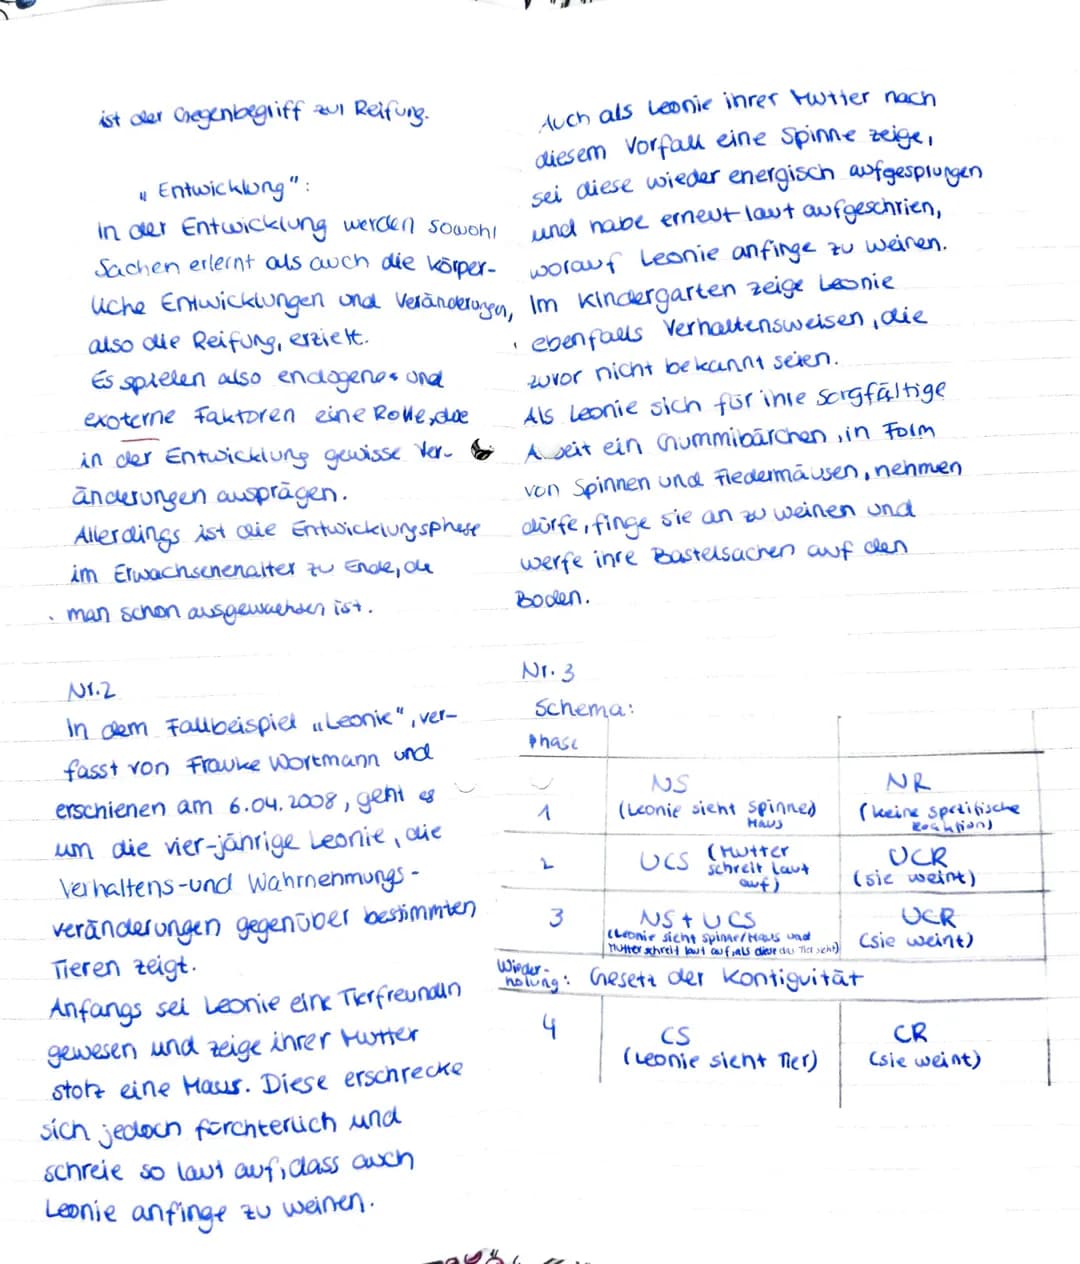 ist der Gegenbegriff zur Reifung.
"Entwicklung":
In der Entwicklung werden sowohl
Sachen erlernt als auch die körper-
liche Entwicklungen und Veränderungen,
also die Reifung, erzielt.
Es spielen also endogene und
exoterne Faktoren eine Rolle, die
in der Entwicklung gewisse Ver-
änderungen ausprägen.
Allerdings ist die Entwicklungsphase
im Erwachsenenalter zu Ende, da
man schon ausgewachsen ist.
Nr.2
In dem Fallbeispiel "Leonie", ver-
fasst von Frauke Wortmann und
erschienen am 6.04.2008, geht es
um die vier-jährige Leonie, die
Verhaltens- und Wahrnehmungs-
veränderungen gegenüber bestimmten
Tieren zeigt.
Anfangs sei Leonie eine Tierfreundin
gewesen und zeige ihrer Mutter
stolz eine Maus. Diese erschrecke
sich jedoch fürchterlich und
schreie so laut auf, dass auch
Leonie anfinge zu weinen.
Auch als Leonie ihrer Mutter nach
diesem Vorfall eine Spinne zeige,
sei diese wieder energisch aufgesprungen
und habe erneut laut aufgeschrien,
worauf Leonie anfinge zu weinen.
Im Kindergarten zeige Leonie
ebenfalls Verhaltensweisen, die
zuvor nicht bekannt seien.
Als Leonie sich für ihre sorgfältige
Arbeit ein Gummibärchen, in Form
von Spinnen und Fledermäusen, nehmen
dürfe, finge sie an zu weinen und
werfe ihre Bastelsachen auf den
Boden.
Nr. 3
Schema:
Phase
1 NS (Leonie sieht Spinne/Maus) NR (keine spezifische Reaktion)
2 UCS (Mutter schreit laut auf) UCR (sie weint)
3 NS + UCS (Leonie sieht Spinne/Maus und Mutter schreit laut auf, als diese das Tier sieht) UCR (sie weint)
Wieder-
holung: Gesetz der Kontiguität
4 CS (Leonie sieht Tier) CR (sie weint)